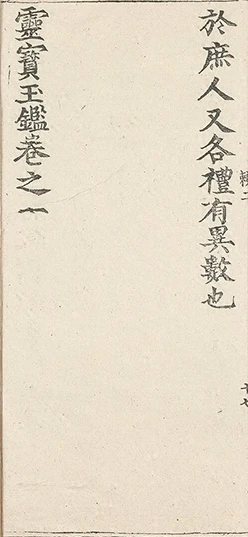 於庶人又各禮有異數也
靈寶玉鑑卷之一